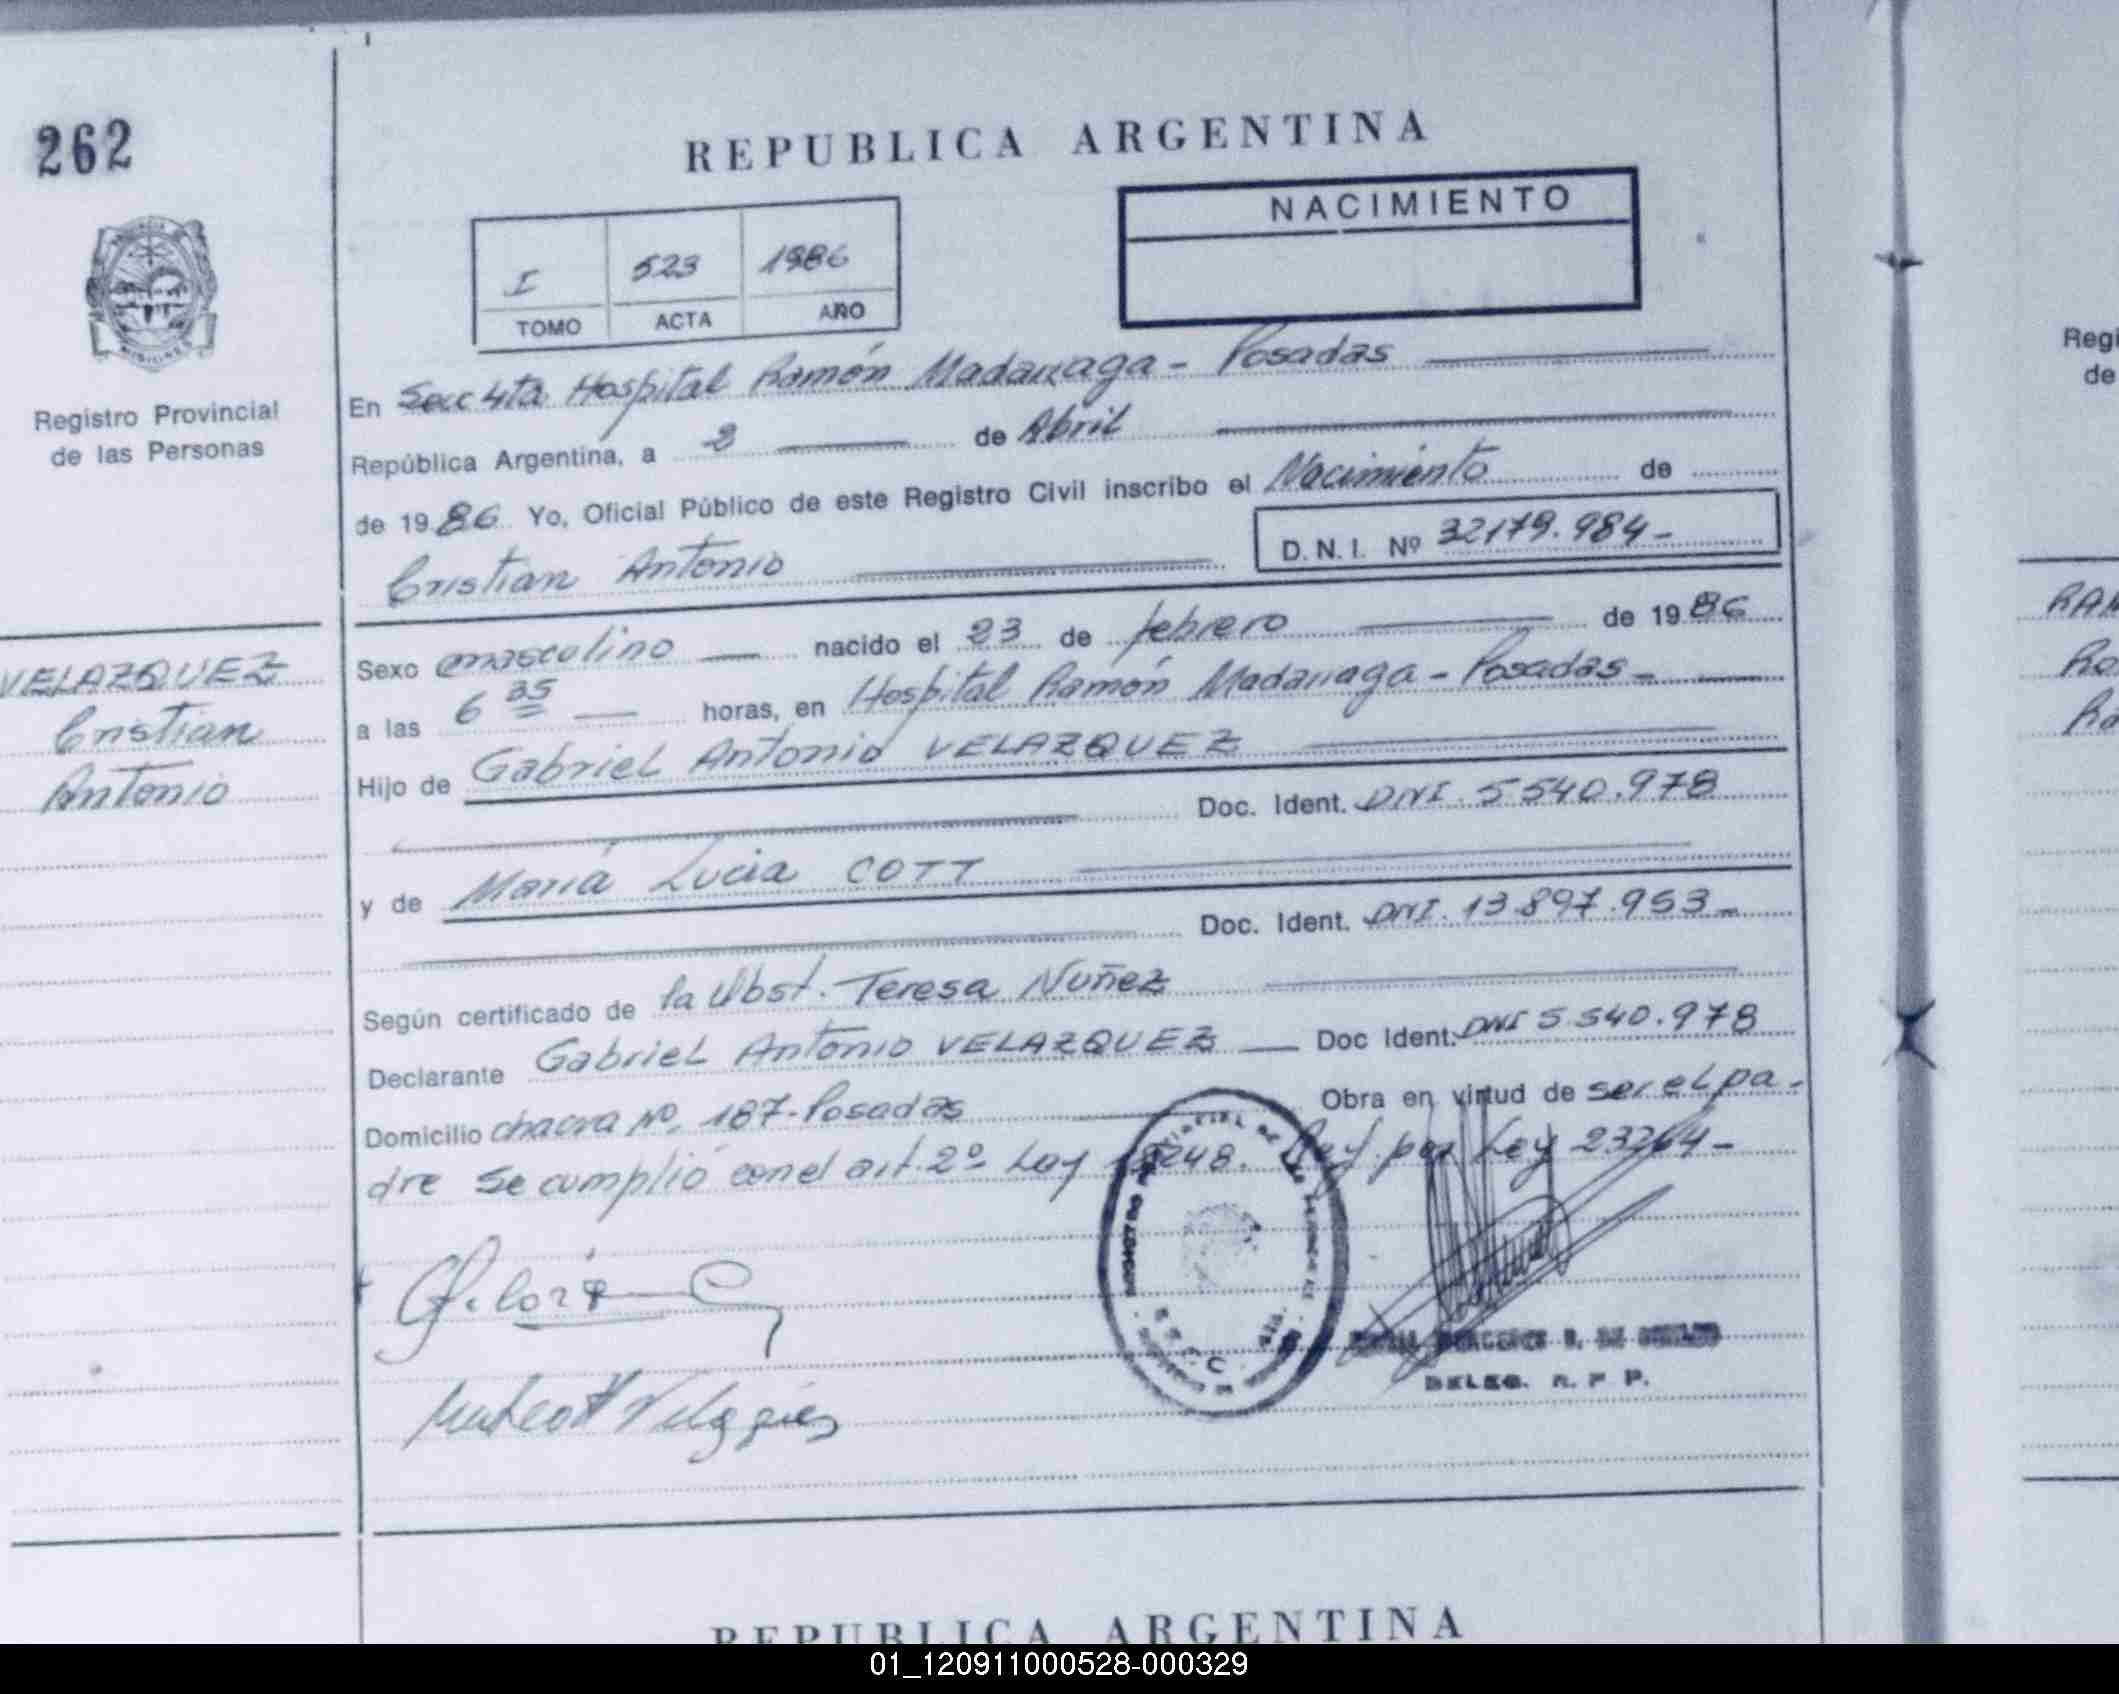 262
REPUBLICA ARGENTINA
NACIMIENTO
I 523 1986
TOMO ACTA AÑO
MISIONES
Registro Provincial
de las Personas
En Secc 4ta Hospital Ramón Madariaga - Posadas
República Argentina, a 2 de Abril
de 1986 Yo, Oficial Público de este Registro Civil inscribo el Nacimiento de
Cristian Antonio D. N. I. Nº 32179.984-
VELAZQUEZ
Cristian
Antonio
Sexo masculino nacido el 23 de febrero de 1986
a las 6 35 horas, en Hospital Ramón Madariaga - Posadas -
Hijo de Gabriel Antonio VELAZQUEZ
Doc. Ident. DNI. 5540.978
y de María Lucia COTT
Doc. Ident. DNI. 13.897.953-
Según certificado de la Obst. Teresa Nuñez
Declarante Gabriel Antonio VELAZQUEZ Doc Ident: DNI 5.540.978
Domicilio chacra Nº 187- Posadas Obra en virtud de ser el pa-
dre Se cumplió con el art. 2º Ley 18248. por Ley 23264-
DELEG. R. P. P.
REPUBLICA ARGENTINA
Regi
de
RAM
Ro
Ra
01_120911000528-000329